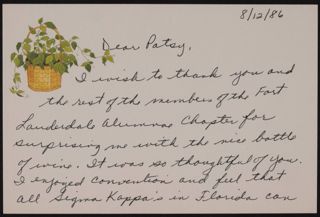 8/12/86
Dear Patsy,
I wish to thank you and
the rest of the members of the Fort
Lauderdale Alumnae Chapter for
surprising me with the nice bottle
of wine. It was so thoughtful of you.
I enjoyed convention and feel that
all Sigma Kappa's in Florida can